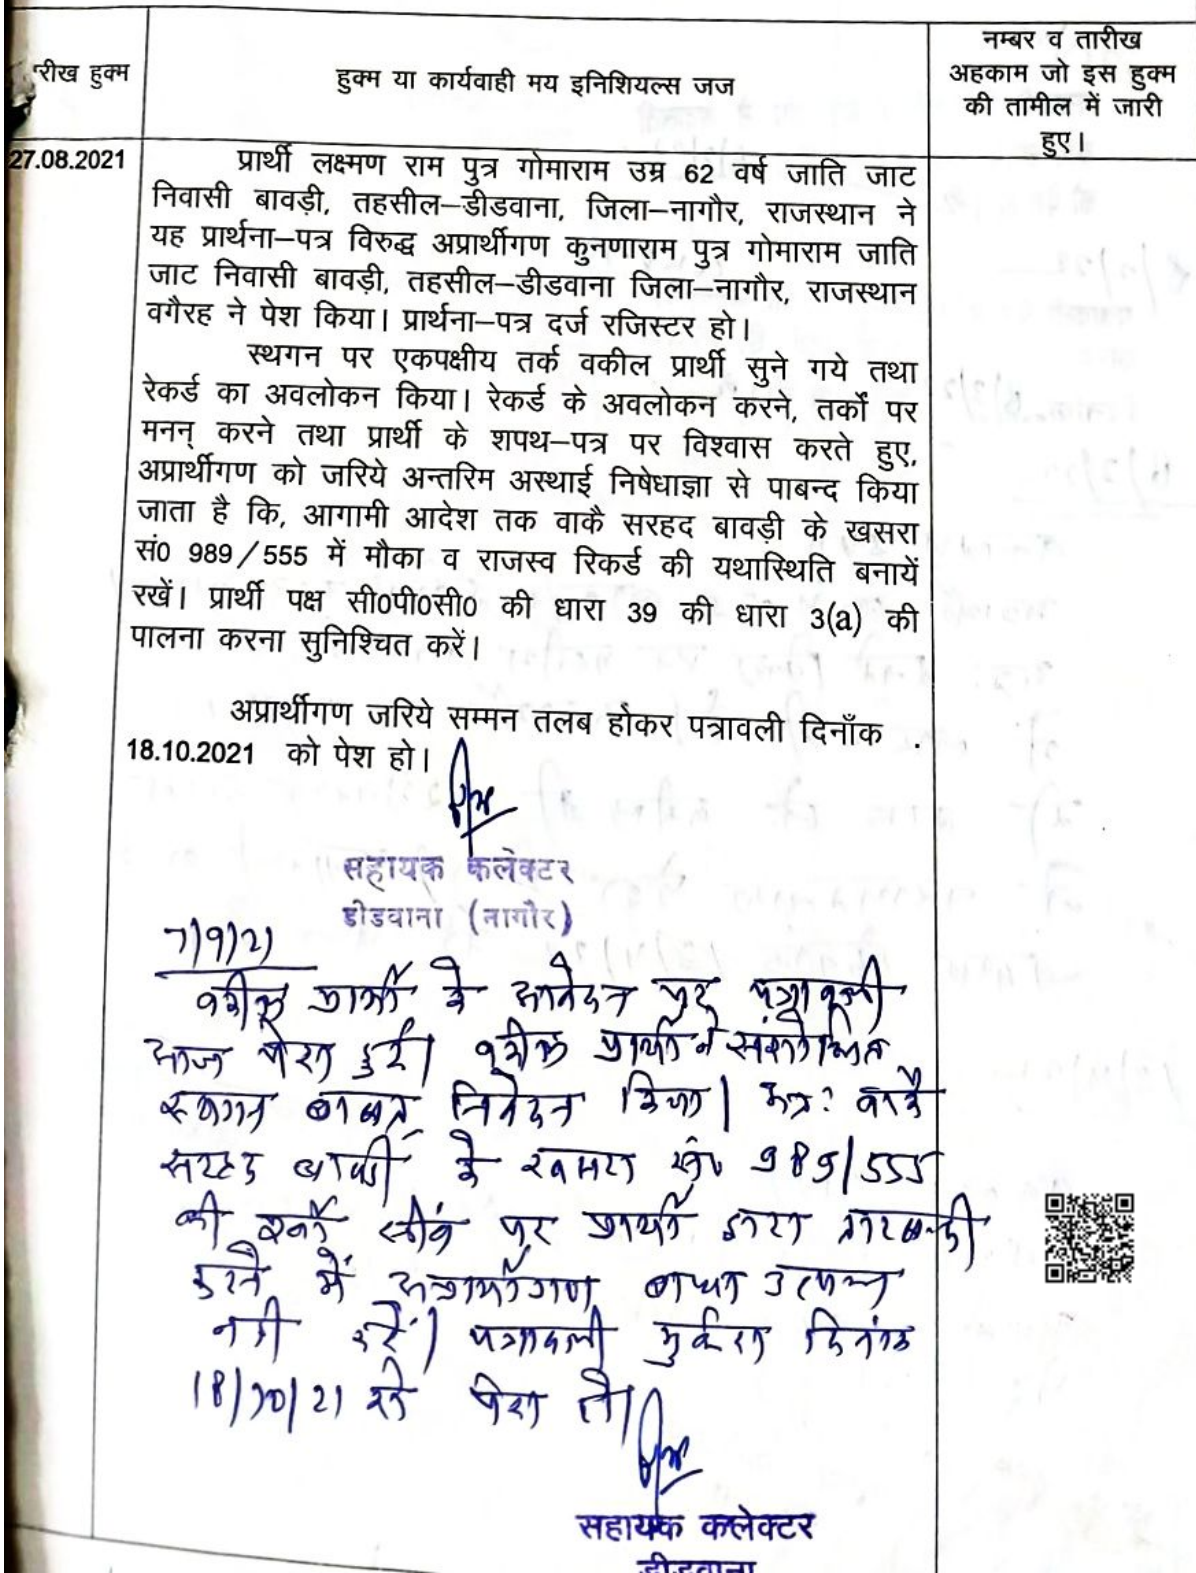 रीख हुक्म
हुक्म या कार्यवाही मय इनिशियल्स जज
नम्बर व तारीख
अहकाम जो इस हुक्म
की तामील में जारी
हुए।
27.08.2021
प्रार्थी लक्ष्मण राम पुत्र गोमाराम उम्र 62 वर्ष जाति जाट
निवासी बावड़ी, तहसील–डीडवाना, जिला–नागौर, राजस्थान ने
यह प्रार्थना–पत्र विरुद्ध अप्रार्थीगण कुनणाराम पुत्र गोमाराम जाति
जाट निवासी बावड़ी, तहसील–डीडवाना जिला–नागौर, राजस्थान
वगैरह ने पेश किया। प्रार्थना–पत्र दर्ज रजिस्टर हो।
स्थगन पर एकपक्षीय तर्क वकील प्रार्थी सुने गये तथा
रेकर्ड का अवलोकन किया। रेकर्ड के अवलोकन करने, तर्कों पर
मनन् करने तथा प्रार्थी के शपथ–पत्र पर विश्वास करते हुए,
अप्रार्थीगण को जरिये अन्तरिम अस्थाई निषेधाज्ञा से पाबन्द किया
जाता है कि, आगामी आदेश तक वाकै सरहद बावड़ी के खसरा
सं0 989/555 में मौका व राजस्व रिकर्ड की यथास्थिति बनायें
रखें। प्रार्थी पक्ष सी0पी0सी0 की धारा 39 की धारा 3(a) की
पालना करना सुनिश्चित करें।
अप्रार्थीगण जरिये सम्मन तलब होकर पत्रावली दिनाँक
18.10.2021 को पेश हो।
सहायक कलेक्टर
डीडवाना (नागौर)
7/9/21
वकील प्रार्थी के आवेदन पर पत्रावली
आज पेश हुई। वकील प्रार्थी ने संशोधित
स्थगन बाबत् निवेदन किया। अतः वाकै
सरहद बावड़ी के खसरा सं० 989/555
की सीव पर प्रार्थी द्वारा तारबन्दी
करने में अप्रार्थीगण बाधा उत्पन्न
नही करें। पत्रावली मुकर्रर दिनांक
18/10/21 को पेश हो।
सहायक कलेक्टर
डीडवाना